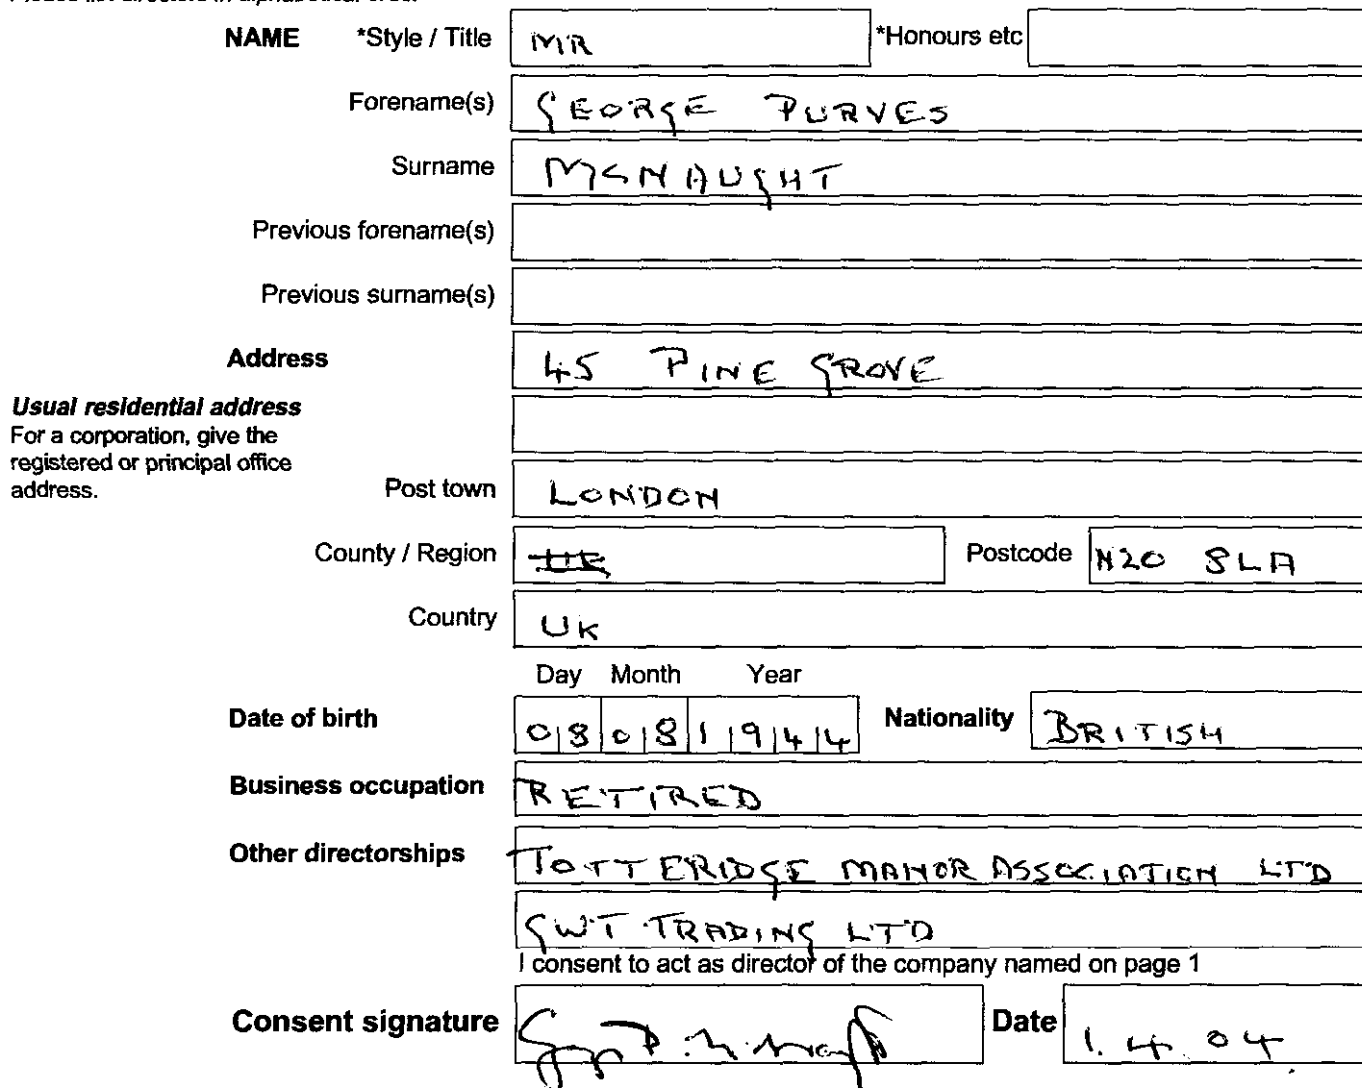 NAME *Style / Title MR *Honours etc
Forename(s) GEORGE PURVES
Surname MCNAUGHT
Previous forename(s)
Previous surname(s)
Address 45 PINE GROVE
Usual residential address
For a corporation, give the
registered or principal office
address.
Post town LONDON
County / Region UK Postcode N20 8LA
Country UK
Day Month Year
Date of birth 08 08 1944 Nationality BRITISH
Business occupation RETIRED
Other directorships TOTTERIDGE MANOR ASSOCIATION LTD
GWT TRADING LTD
I consent to act as director of the company named on page 1
Consent signature Date 1.4.04